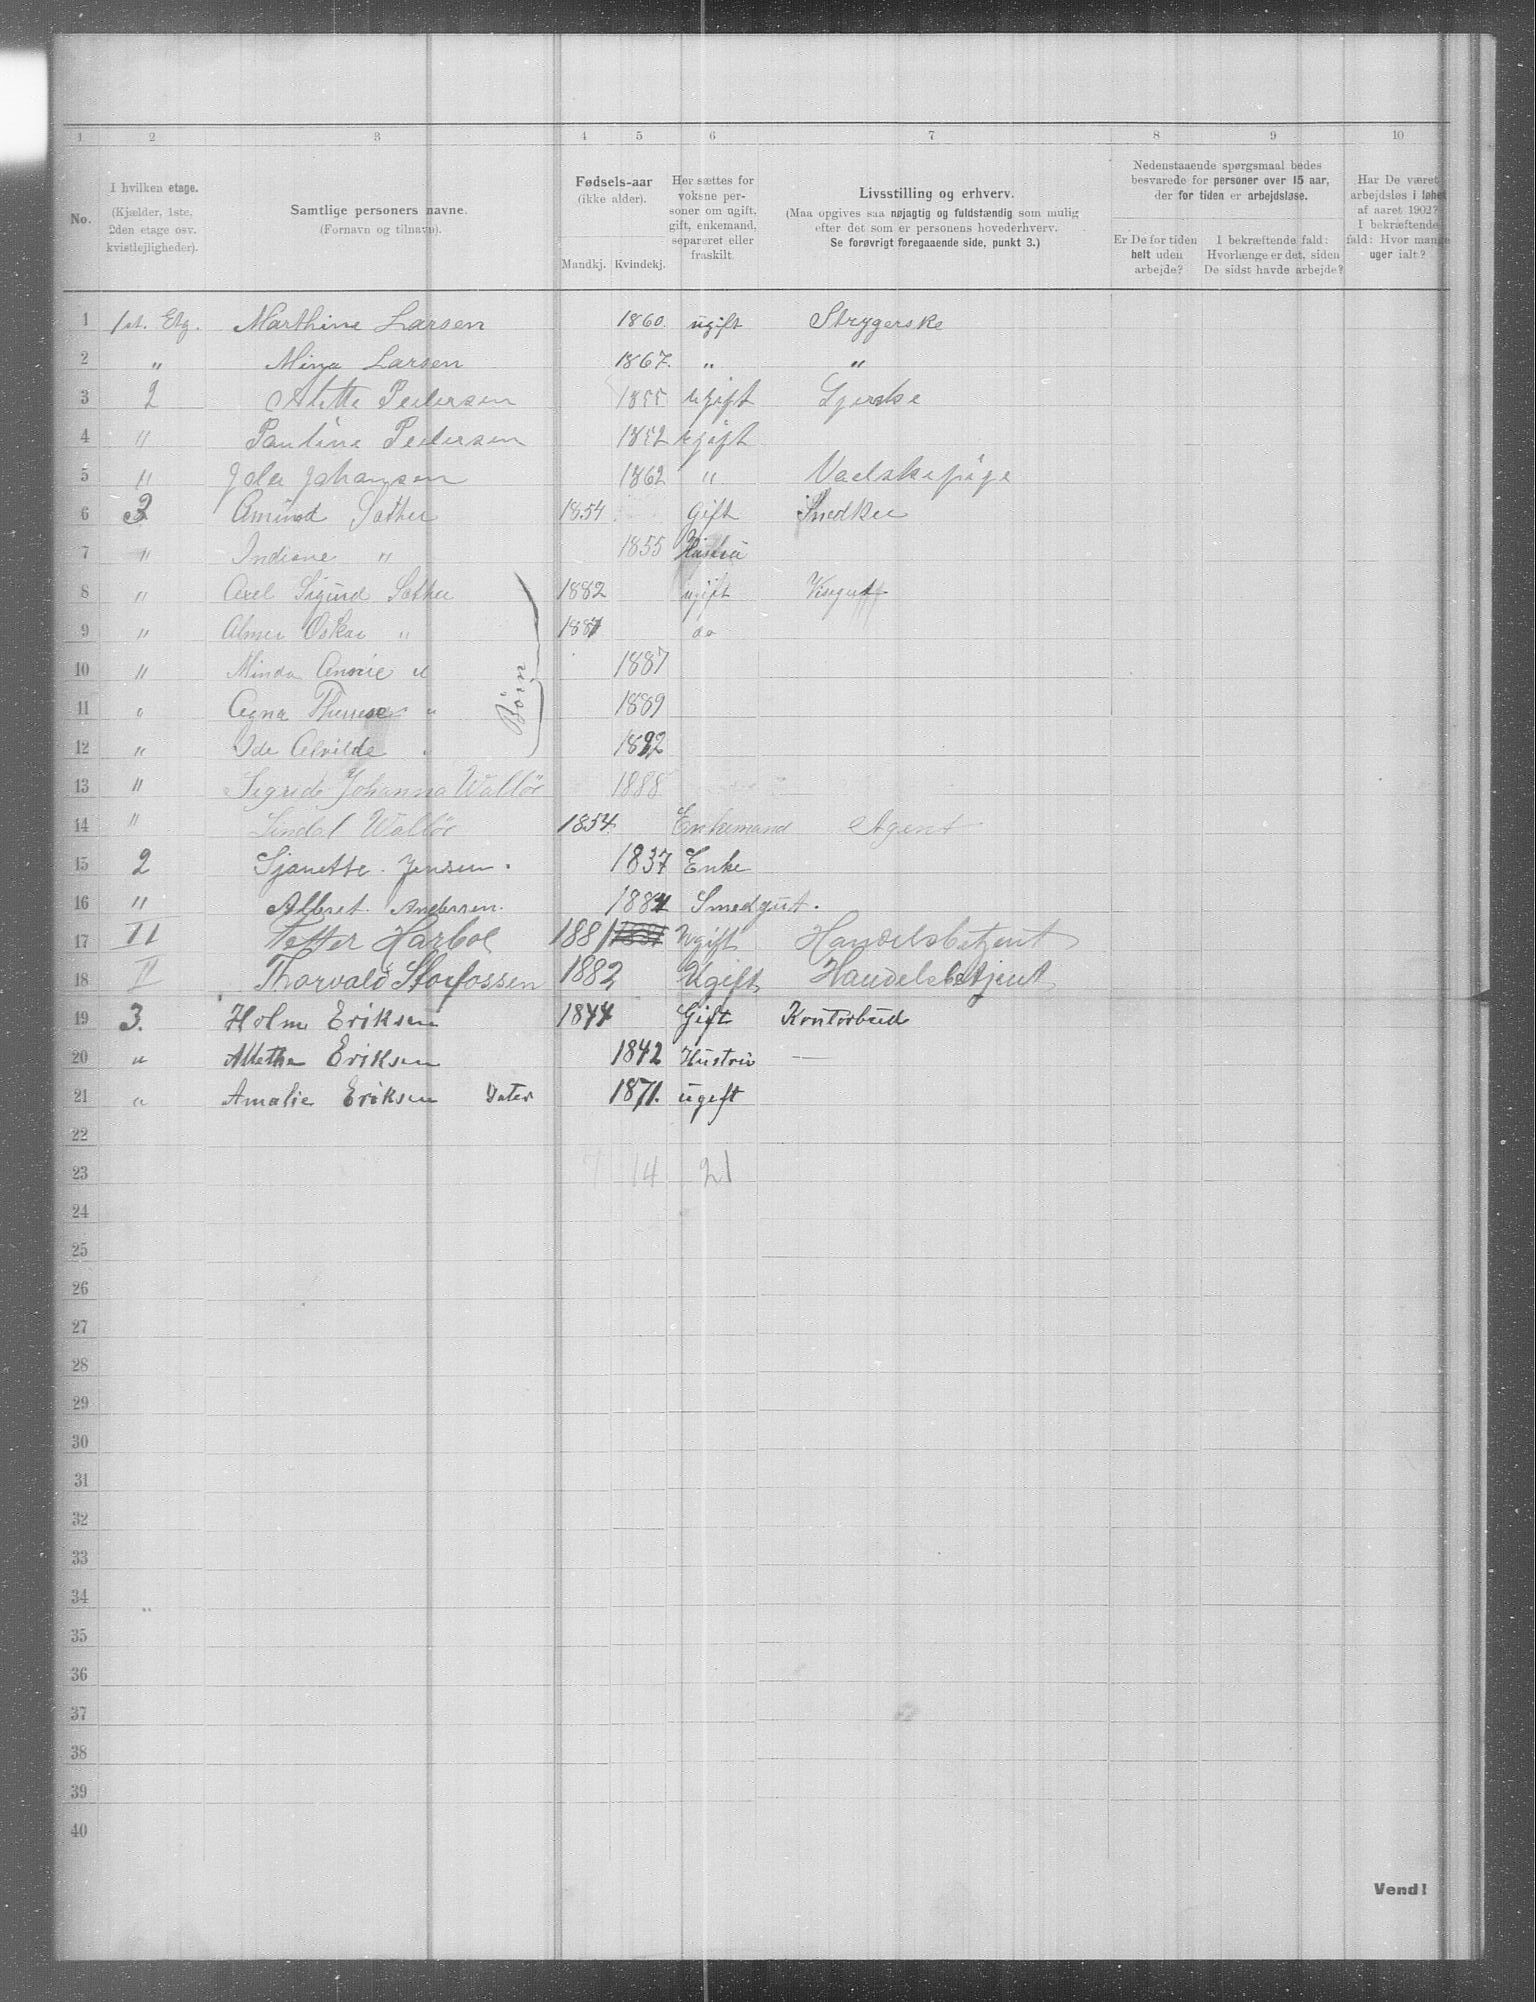 1 2 3 4 5 6 7 8 9 10
No.
I hvilken etage.
(Kjælder, 1ste,
2den etage osv.
kvistlejligheder).
Samtlige personers navne.
(Fornavn og tilnavn).
Fødsels-aar
(ikke alder).
Mandkj. Kvindekj.
Her sættes for
voksne per-
soner om ugift,
gift, enkemand,
separeret eller
fraskilt.
Livsstilling og erhverv.
(Maa opgives saa nøjagtig og fuldstændig som mulig
efter det som er personens hovederhverv.
Se forøvrigt foregaaende side, punkt 3.)
Nedenstaaende spørgsmaal bedes
besvarede for personer over 15 aar,
der for tiden er arbejdsløse.
Er De for tiden
helt uden
arbejde?
I bekræftende fald:
Hvorlænge er det, siden
De sidst havde arbejde?
Har De været
arbejdsløs i løbet
af aaret 1902?
I bekræftende
fald: Hvor mange
uger ialt?
1 1st. Etg. Marthine Larsen 1860. ugift Strygerske
2 " Mina Larsen 1867. " "
3 2 Alette Pedersen 1855 Ugift Syerske
4 " Pauline Pedersen 1852 Ugift
5 " Johansen 1862 " Vadskepige
6 3 Amund Sother 1854 Gift Snedker
7 " Indiane " 1855 Hustru
8 " Axel Sigurd Sother 1882 ugift Visegut
9 " Almer Oskar " 1881 do
10 " Minda " 1887
11 " Agna Therese " 1889
12 " Ida Alvilde " 1892
Børn
13 " Sigrid Johanna Walløe 1888
14 " Walløe 1854 Enkemand Agent
15 2 Sjanette Jensen. 1837 Enke
16 " Albret Andersen. 1884 Smedgut.
17 II Petter Harboe 1881 Ugift Handelsbetjent
18 II Thorvald Storfossen 1882 Ugift Handelsbetjent
19 3. Holm Eriksen 1844 Gift Kontorbud
20 " Alethe Eriksen 1842 Hustru —
21 " Amalie Eriksen Dater 1871. ugift
22
23 7 14 21
24
25
26
27
28
29
30
31
32
33
34
35
36
37
38
39
40
Vend!